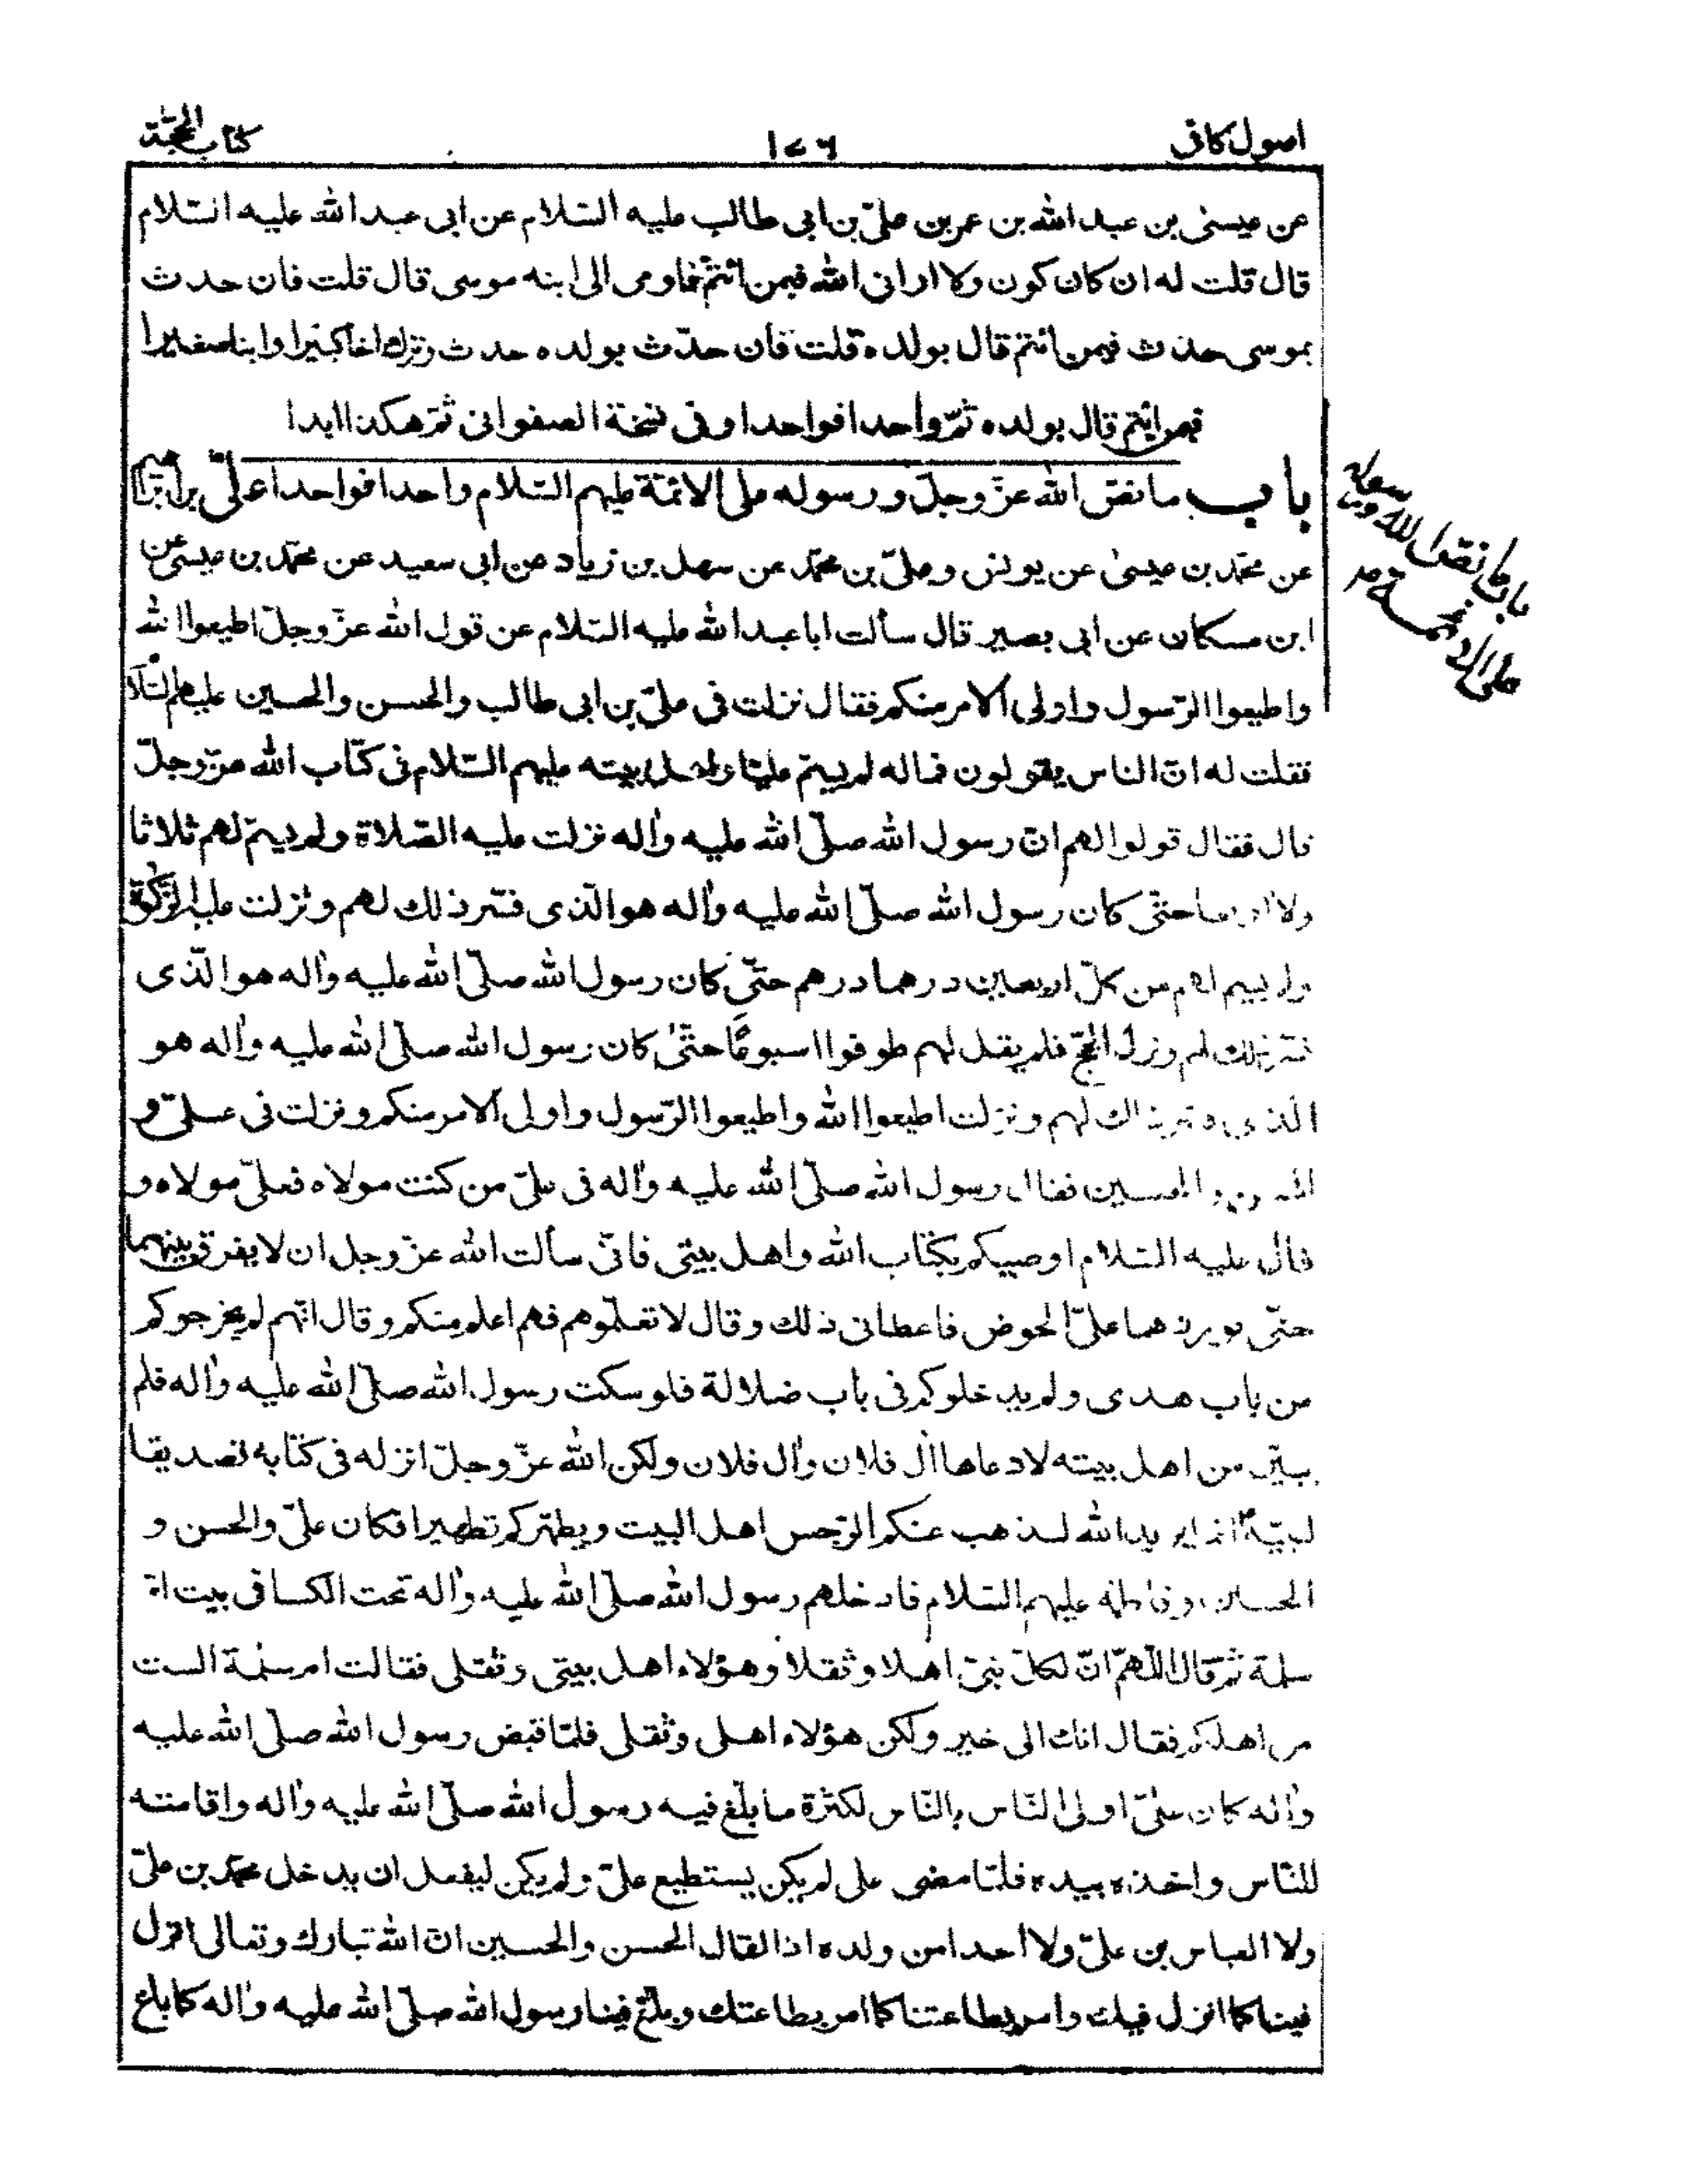 اصول كافى
١٧٦
كتاب الحجّة
عن عيسىٰ بن عبد الله بن عمر بن علىّ بن ابى طالب عليه السّلام عن ابى عبد الله عليه السّلام
قال قلت له ان كان كون ولا ارانى الله فبمن ائتمّ فاومى الى ابنه موسى قال قلت فان حدث
بموسى حدث فبمن ائتم قال بولده قلت فان حدّث بولده حدث وترك اخا كبيرا وابنا صغيرا
فبمن ائتم قال بولده ثمّ واحدا فواحدا وفى نسخة الصفوانى ثمّ هكذا ابدا
باب ما نصّ الله عزّ وجلّ ورسوله على الائمّة عليهم السّلام واحدا فواحدا علىّ بن ابراهيم
عن محمّد بن عيسىٰ عن يونس وعلىّ بن محمّد عن سهل بن زياد عن ابى سعيد عن محمّد بن عيسىٰ عن
ابن مسكان عن ابى بصير قال سألت ابا عبد الله عليه السّلام عن قول الله عزّ وجلّ اطيعوا الله
واطيعوا الرّسول واولى الامر منكم فقال نزلت فى علىّ بن ابى طالب والحسن والحسين عليهم السّلام
فقلت له انّ الناس يقولون فما له لم يسمّ عليّا واهل بيته عليهم السّلام فى كتاب الله عزّ وجلّ
قال فقال قولوا لهم انّ رسول الله صلّى الله عليه واٰله نزلت عليه الصّلاة ولم يسمّ لهم ثلاثا
ولا اربعا حتّى كان رسول الله صلّى الله عليه واٰله هو الّذى فسّر ذلك لهم ونزلت عليه الزّكوة
ولم يسم لهم من كلّ اربعين درهما درهم حتّى كان رسول الله صلّى الله عليه واٰله هو الّذى
فسّر ذلك لهم ونزل الحجّ فلم يقل لهم طوفوا اسبوعًا حتّىٰ كان رسول الله صلّى الله عليه واٰله هو
الّذى فسّر ذلك لهم ونزلت اطيعوا الله واطيعوا الرّسول واولى الامر منكم ونزلت فى علىّ و
الحسن والحسين فقال رسول الله صلّى الله عليه واٰله فى علىّ من كنت مولاه فعلىّ مولاه و
قال عليه السّلام اوصيكم بكتاب الله واهل بيتى فانّى سألت الله عزّ وجل ان لا يفرق بينهما
حتّى يوردهما علىّ الحوض فاعطانى ذلك وقال لا تعلّموهم فهم اعلم منكم وقال انّهم لم يخرجوكم
من باب هدى ولم يدخلوكم فى باب ضلالة فلو سكت رسول الله صلّى الله عليه واٰله فلم
يبيّن من اهل بيته لادعاها اٰل فلان واٰل فلان ولكن الله عزّ وجلّ انزله فى كتابه تصديقا
لنبيّه انما يريد الله ليذهب عنكم الرّجس اهل البيت ويطهّركم تطهيرا فكان علىّ والحسن و
الحسين وفاطمة عليهم السّلام فادخلهم رسول الله صلّى الله عليه واٰله تحت الكسا فى بيت ام
سلمة ثم قال اللّهمّ انّ لكلّ نبىّ اهلا وثقلا وهؤلاء اهل بيتى وثقلى فقالت ام سلمة الست
من اهلك فقال انك الى خير ولكن هؤلاء اهلى وثقلى فلمّا قبض رسول الله صلّى الله عليه
واٰله كان علىّ اولى النّاس بالنّاس لكثرة ما بلّغ فيه رسول الله صلّى الله عليه واٰله واقامته
للنّاس واخذه بيده فلمّا مضى على لم يكن يستطيع علىّ ولم يكن ليفعل ان يدخل محمّد بن علىّ
ولا العباس بن علىّ ولا احدا من ولده اذا لقال الحسن والحسين انّ الله تبارك وتعالى انزل
فينا كما انزل فيك وامر بطاعتنا كما امر بطاعتك وبلّغ فينا رسول الله صلّى الله عليه واٰله كما بلغ
باب ما نصّ الله ورسوله